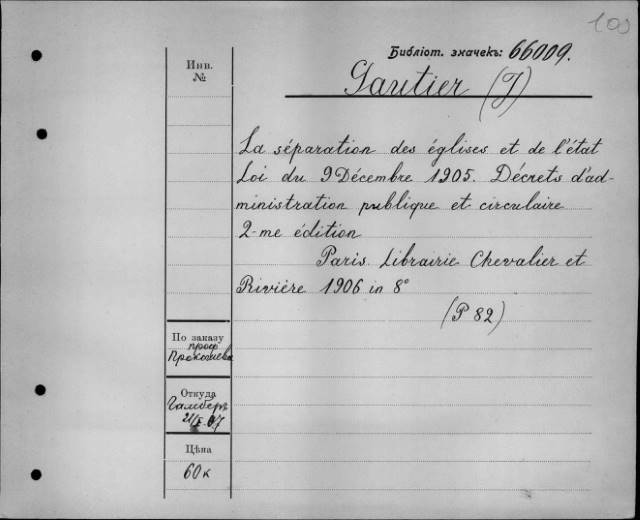 109
Библіот. значекъ: 66009.
Инв.
№
Gautier (J)
La séparation des églises et de l'état
Loi du 9 Décembre 1905. Décrets d'ad-
ministration publique et circulaire
2-me édition
Paris. Librairie Chevalier et
Rivière 1906 in 8°
(P 82)
По заказу
проф
Откуда
Цѣна
60 к